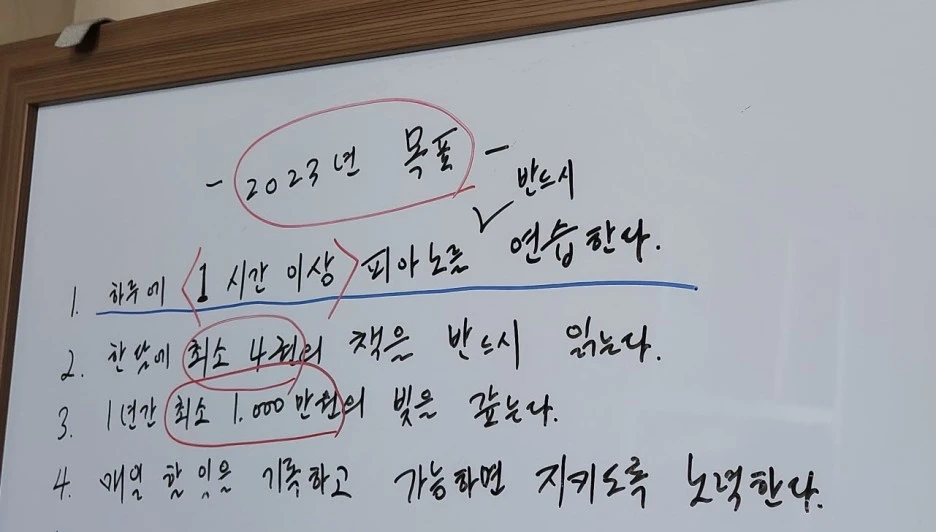 - 2023년 목표 -
반드시
1. 하루에 <1 시간 이상> 피아노를 ✓ 연습한다.
2. 한달에 최소 4권의 책을 반드시 읽는다.
3. 1년간 최소 1.000만원의 빚을 갚는다.
4. 매일 할 일을 기록하고 가능하면 지키도록 노력한다.